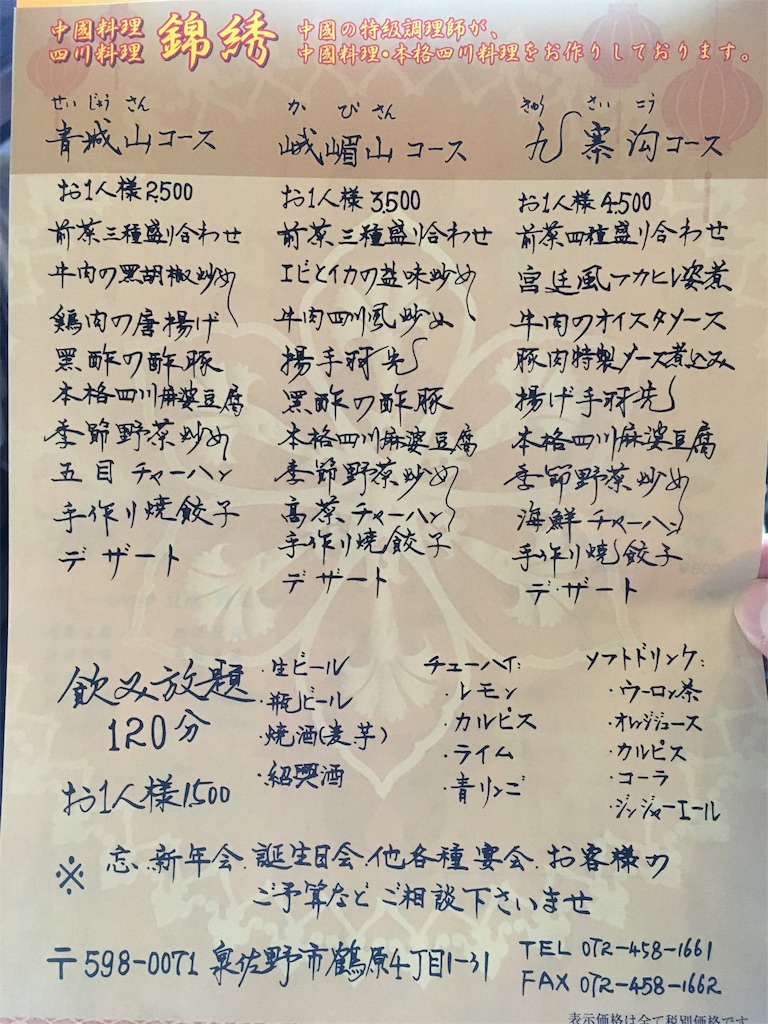 中國料理
四川料理
錦綉
中國の特級調理師が、
中國料理・本格四川料理をお作りしております。
せいじょうさん
青城山コース
お1人様2,500
前菜三種盛り合わせ
牛肉の黒胡椒炒め
鶏肉の唐揚げ
黑酢の酢豚
本格四川麻婆豆腐
季節野菜炒め
五目チャーハン
手作り焼餃子
デザート
かびさん
峨嵋山コース
お1人様3,500
前菜三種盛り合わせ
エビとイカの塩味炒め
牛肉四川風炒め
揚手羽先
黑酢の酢豚
本格四川麻婆豆腐
季節野菜炒め
高菜チャーハン
手作り焼餃子
デザート
きゅうさいこう
九寨沟コース
お1人様4,500
前菜四種盛り合わせ
宮廷風フカヒレ姿煮
牛肉のオイスタソース
豚肉特製ソース煮込み
揚げ手羽先
本格四川麻婆豆腐
季節野菜炒め
海鮮チャーハン
手作り焼餃子
デザート
飲み放題
120分
お1人様1,500
・生ビール
・瓶ビール
・焼酒(麦芋)
・紹興酒
チューハイ:
・レモン
・カルピス
・ライム
・青リンゴ
ソフトドリンク:
・ウーロン茶
・オレンジジュース
・カルピス
・コーラ
・ジンジャーエール
※ 忘.新年会.誕生日会.他各種宴会.お客様の
ご予算などご相談下さいませ
〒598-0071 泉佐野市鶴原4丁目1-31
TEL 072-458-1661
FAX 072-458-1662
表示価格は全て税別価格です